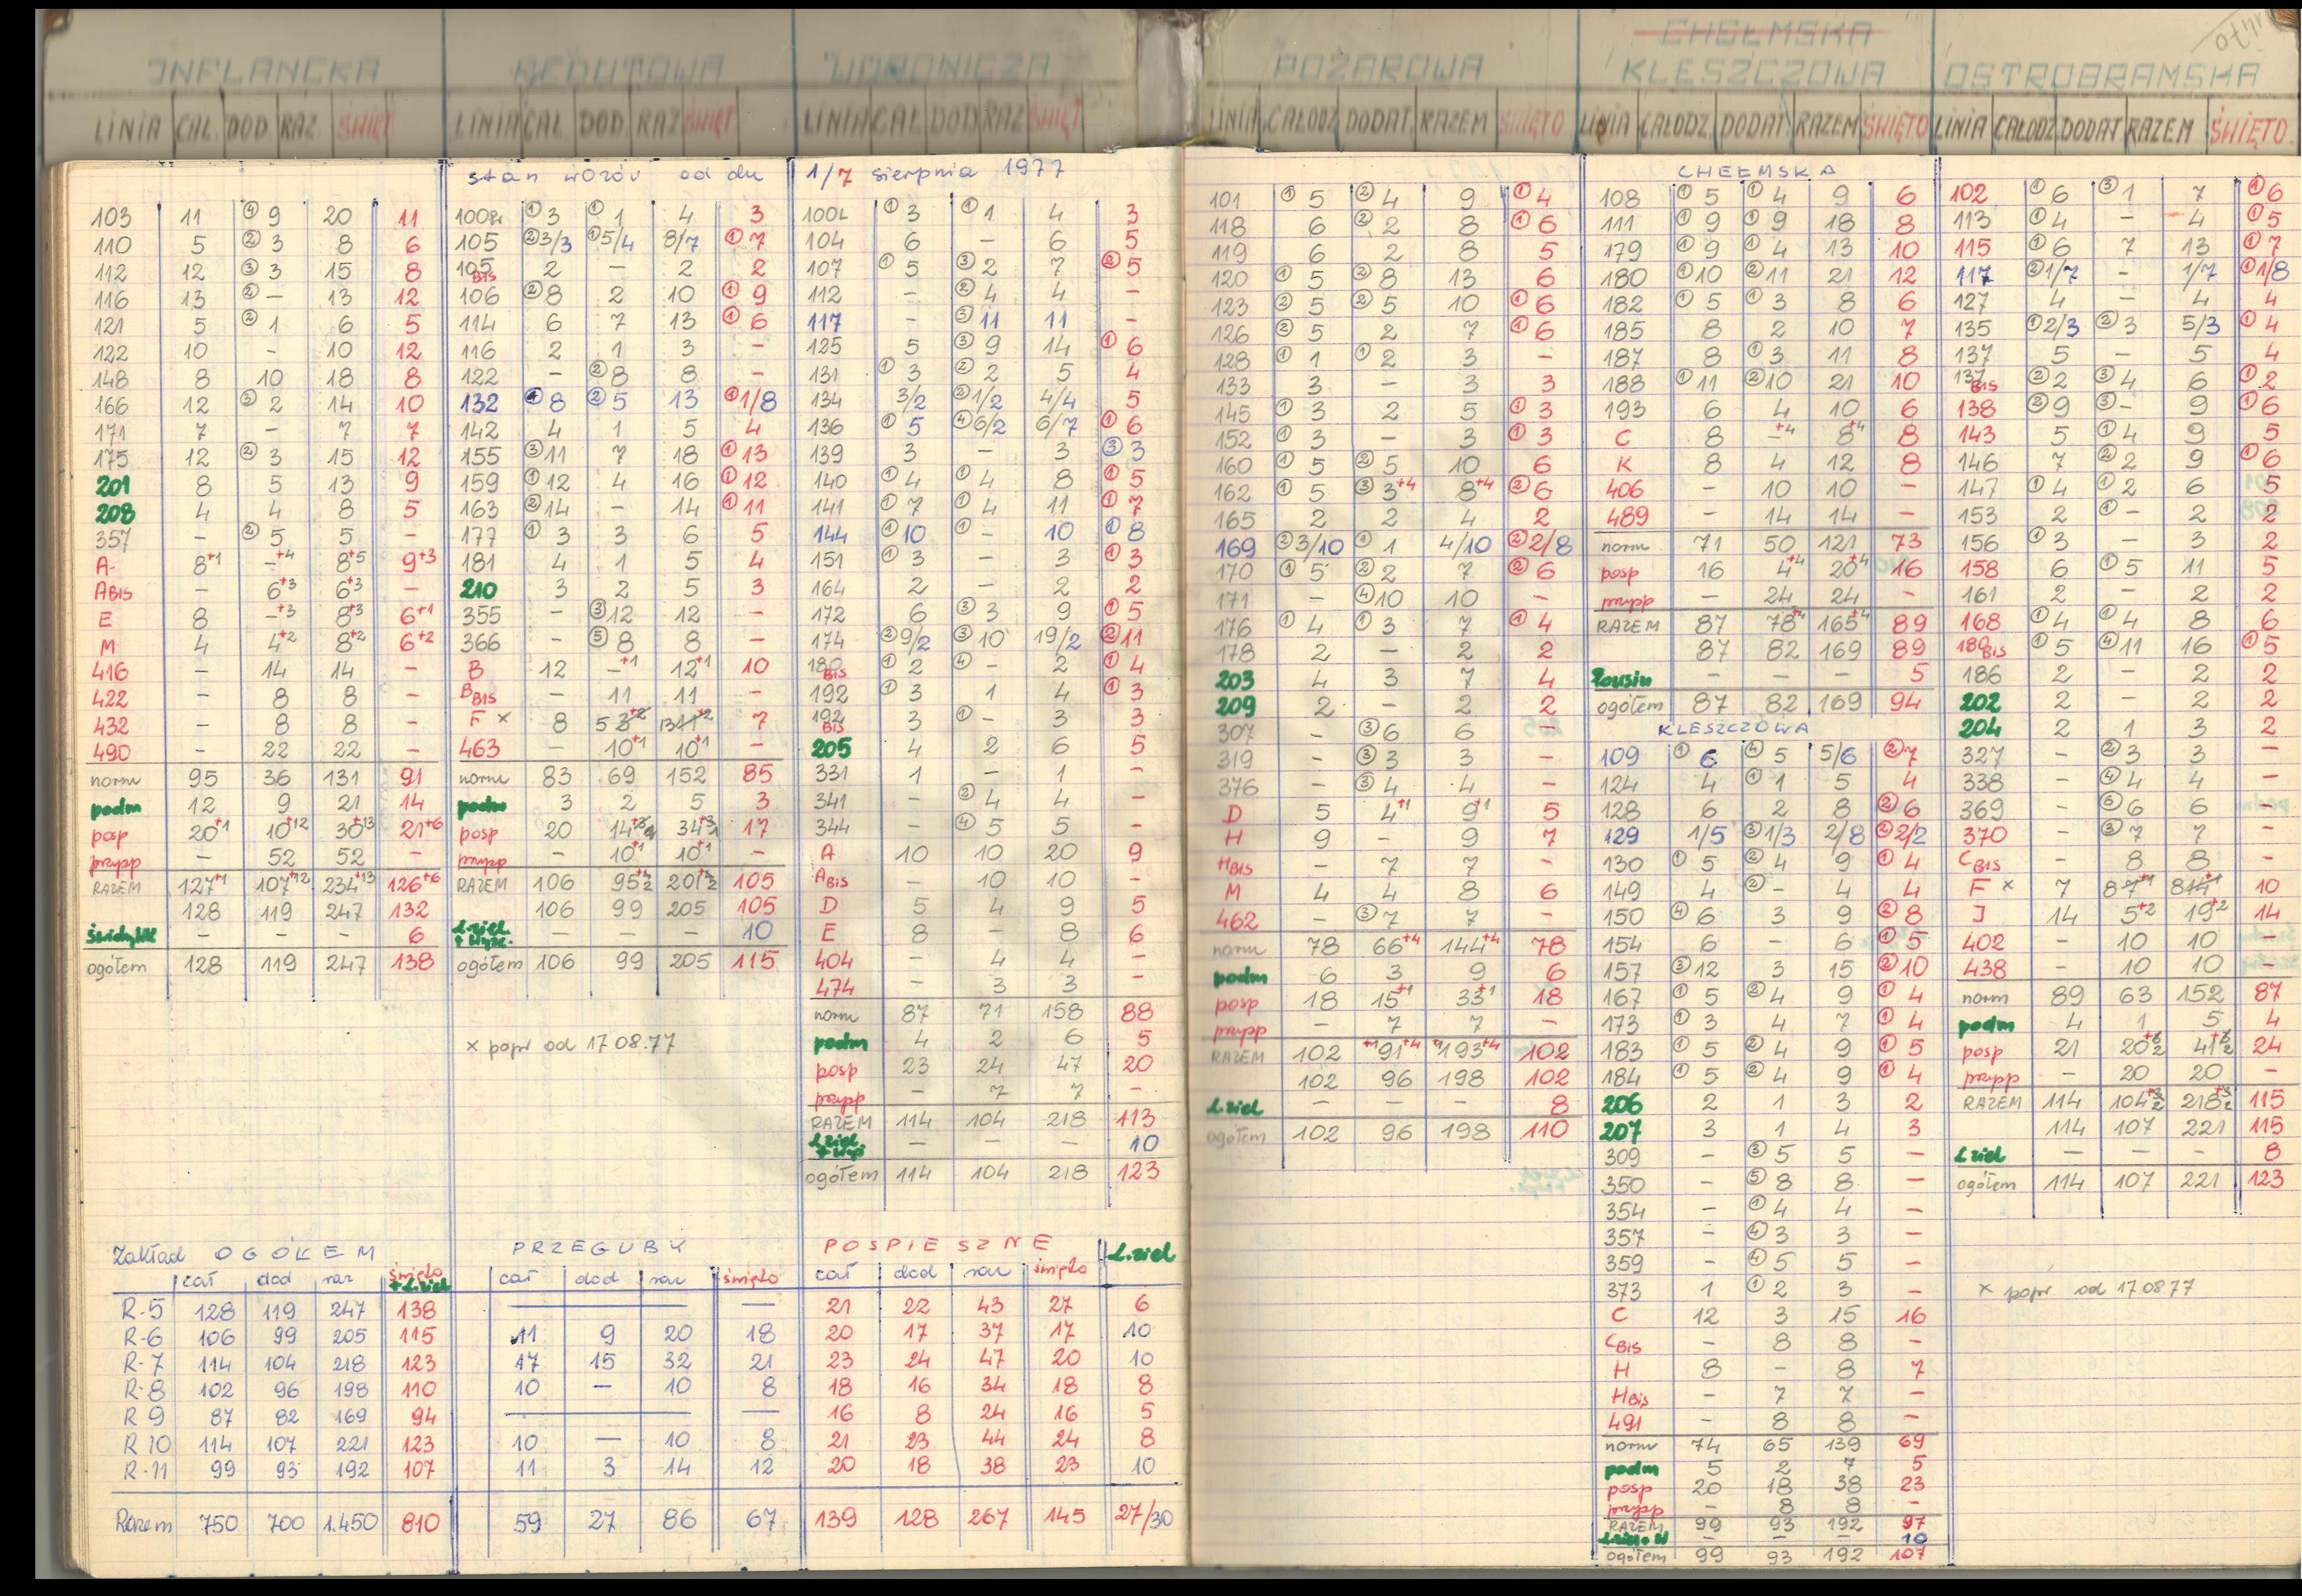 INFLANCKA
LINIA CAŁ. DOD RAZ ŚWIĘT
103 11 ④9 20 11
110 5 ②3 8 6
112 12 ③3 15 8
116 13 ②- 13 12
121 5 ②1 6 5
122 10 - 10 12
148 8 10 18 8
166 12 ③2 14 10
171 7 - 7 7
175 12 ②3 15 12
201 8 5 13 9
208 4 4 8 5
357 - ②5 5 -
A- 8+1 -+4 8+5 9+3
ABIS - 6+3 6+3 -
E 8 -+3 8+3 6+1
M 4 4+2 8+2 6+2
416 - 14 14 -
422 - 8 8 -
432 - 8 8 -
490 - 22 22 -
norm 95 36 131 91
podm 12 9 21 14
posp 20+1 10+12 30+13 21+6
przypp - 52 52 -
RAZEM 127+1 107+12 234+13 126+6
128 119 247 132
- - - 6
ogółem 128 119 247 138
REDUTOWA
LINIA CAŁ DOD RAZ ŚWIĘT
stan wozów od dn 1/7 sierpnia 1977
100R ①3 ①1 4 3
105 ②3/3 ①5/4 8/7 ①7
105BIS 2 - 2 2
106 ②8 2 10 ①9
114 6 7 13 ①6
116 2 1 3 -
122 - ②8 8 -
132 ①8 ②5 13 ①1/8
142 4 1 5 4
155 ③11 7 18 ①13
159 ①12 4 16 ①12
163 ②14 - 14 ①11
177 ①3 3 6 5
181 4 1 5 4
210 3 2 5 3
355 - ③12 12 -
366 - ⑤8 8 -
B 12 -+1 12+1 10
BBIS - 11 11 -
F x 8 5 13 7
463 - 10+1 10+1 -
norm 83 69 152 85
podm 3 2 5 3
posp 20 14 34 17
przypp - 10+1 10+1 -
RAZEM 106 95 201 105
106 99 205 105
- - - 10
ogółem 106 99 205 115
x popr od 17 08.77
WORONICZA
LINIA CAŁ DOD RAZ ŚWIĘT
100L ①3 ①1 4 3
104 6 - 6 5
107 ①5 ③2 7 ②5
112 - ②4 4 -
117 - ⑤11 11 -
125 5 ③9 14 ①6
131 ①3 ②2 5 4
134 3/2 ②1/2 4/4 5
136 ①5 ④6/2 6/7 ①6
139 3 - 3 ③3
140 ①4 ①4 8 ①5
141 ①7 ①4 11 ①7
144 ①10 ①- 10 ①8
151 ①3 - 3 ①3
164 2 - 2 2
172 6 ③3 9 ①5
174 ②9/2 ③10 19/2 ②11
180BIS ①2 ④- 2 ①4
192 ①3 1 4 ①3
192BIS 3 ①- 3 3
205 4 2 6 5
331 1 - 1 -
341 - ②4 4 -
344 - ④5 5 -
A 10 10 20 9
ABIS - 10 10 -
D 5 4 9 5
E 8 - 8 6
404 - 4 4 -
474 - 3 3 -
norm 87 71 158 88
podm 4 2 6 5
posp 23 24 47 20
przypp - 7 7 -
RAZEM 114 104 218 113
- - - 10
ogółem 114 104 218 123
Zakład OGÓŁEM
cał dod raz święto + L.ziel
R-5 128 119 247 138
R-6 106 99 205 115
R-7 114 104 218 123
R-8 102 96 198 110
R 9 87 82 169 94
R 10 114 107 221 123
R-11 99 93 192 107
Razem 750 700 1.450 810
PRZEGUBY
cał dod raz święto
11 9 20 18
17 15 32 21
10 — 10 8
10 — 10 8
11 3 14 12
59 27 86 67
POSPIESZNE L.ziel
cał dod raz święto
21 22 43 27 6
20 17 37 17 10
23 24 47 20 10
18 16 34 18 8
16 8 24 16 5
21 23 44 24 8
20 18 38 23 10
139 128 267 145 27/30
POŻAROWA
LINIA CAŁODZ DODAT. RAZEM ŚWIĘTO
101 ①5 ②4 9 ①4
118 6 ②2 8 ①6
119 6 2 8 5
120 ①5 ②8 13 6
123 ②5 ②5 10 ①6
126 ②5 2 7 ①6
128 ①1 ①2 3 -
133 3 - 3 3
145 ①3 2 5 ①3
152 ①3 - 3 ①3
160 ①5 ②5 10 6
162 ①5 ③3+4 8+4 ②6
165 2 2 4 2
169 ②3/10 ①1 4/10 ②2/8
170 ①5 ②2 7 ②6
171 - ④10 10 -
176 ①4 ①3 7 ①4
178 2 - 2 2
203 4 3 7 4
209 2 - 2 2
307 - ③6 6 -
319 - ③3 3 -
376 - ③4 4 -
D 5 4+1 9+1 5
H 9 - 9 7
HBIS - 7 7 -
M 4 4 8 6
462 - ③7 7 -
norm 78 66+4 144+4 78
podm 6 3 9 6
posp 18 15+1 33+1 18
przypp - 7 7 -
RAZEM 102 +1 91+4 +1 193+4 102
102 96 198 102
L.ziel - - - 8
ogółem 102 96 198 110
CHEŁMSKA
KLESZCZOWA
LINIA CAŁODZ. DODAT. RAZEM ŚWIĘTO
CHEŁMSKA
108 ①5 ①4 9 6
111 ①9 ①9 18 8
179 ①9 ①4 13 10
180 ①10 ②11 21 12
182 ①5 ①3 8 6
185 8 2 10 7
187 8 ①3 11 8
188 ①11 ②10 21 10
193 6 4 10 6
C 8 -+4 8+4 8
K 8 4 12 8
406 - 10 10 -
489 - 14 14 -
norm 71 50 121 73
posp 16 4+4 20+4 16
przypp - 24 24 -
RAZEM 87 78+4 165+4 89
87 82 169 89
- - - 5
ogółem 87 82 169 94
KLESZCZOWA
109 ①6 ④5 5/6 ②7
124 4 ①1 5 4
128 6 2 8 ②6
129 1/5 ③1/3 2/8 ②2/2
130 ①5 ②4 9 ①4
149 4 ②- 4 4
150 ④6 3 9 ②8
154 6 - 6 ①5
157 ③12 3 15 ②10
167 ①5 ②4 9 ①4
173 ①3 4 7 ①4
183 ①5 ②4 9 ①5
184 ①5 ②4 9 ①4
206 2 1 3 2
207 3 1 4 3
309 - ③5 5 -
350 - ⑤8 8 -
354 - ①4 4 -
357 - ④3 3 -
359 - ④5 5 -
373 1 ①2 3 -
C 12 3 15 16
CBIS - 8 8 -
H 8 - 8 7
HBIS - 7 7 -
491 - 8 8 -
norm 74 65 139 69
podm 5 2 7 5
posp 20 18 38 23
przypp - 8 8 -
RAZEM 99 93 192 97
- - - 10
ogółem 99 93 192 107
OSTROBRAMSKA
LINIA CAŁODZ DODAT RAZEM ŚWIĘTO.
102 ①6 ③1 7 ①6
113 ①4 - 4 ①5
115 ①6 7 13 ①7
117 ②1/7 - 1/7 ①1/8
127 4 - 4 4
135 ①2/3 ②3 5/3 ①4
137 5 - 5 4
137BIS ②2 ③4 6 ①2
138 ②9 ③- 9 ①6
143 5 ①4 9 5
146 7 ②2 9 ①6
147 ①4 ①2 6 5
153 2 ①- 2 2
156 ①3 - 3 2
158 6 ①5 11 5
161 2 - 2 2
168 ①4 ①4 8 6
189BIS ①5 ④11 16 ①5
186 2 - 2 2
202 2 - 2 2
204 2 1 3 2
327 - ②3 3 -
338 - ④4 4 -
369 - ⑥6 6 -
370 - ③7 7 -
CBIS - 8 8 -
F x 7 8 10
J 14 5+2 19+2 14
402 - 10 10 -
438 - 10 10 -
norm 89 63 152 87
podm 4 1 5 4
posp 21 20 41 24
przypp - 20 20 -
RAZEM 114 104 218 115
114 107 221 115
L ziel - - - 8
ogółem 114 107 221 123
x popr od 17.08 77